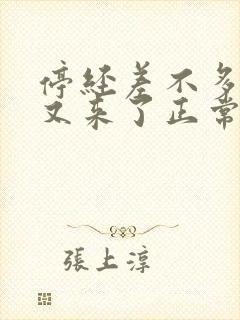 停經差不多
又来了正常
張上淳